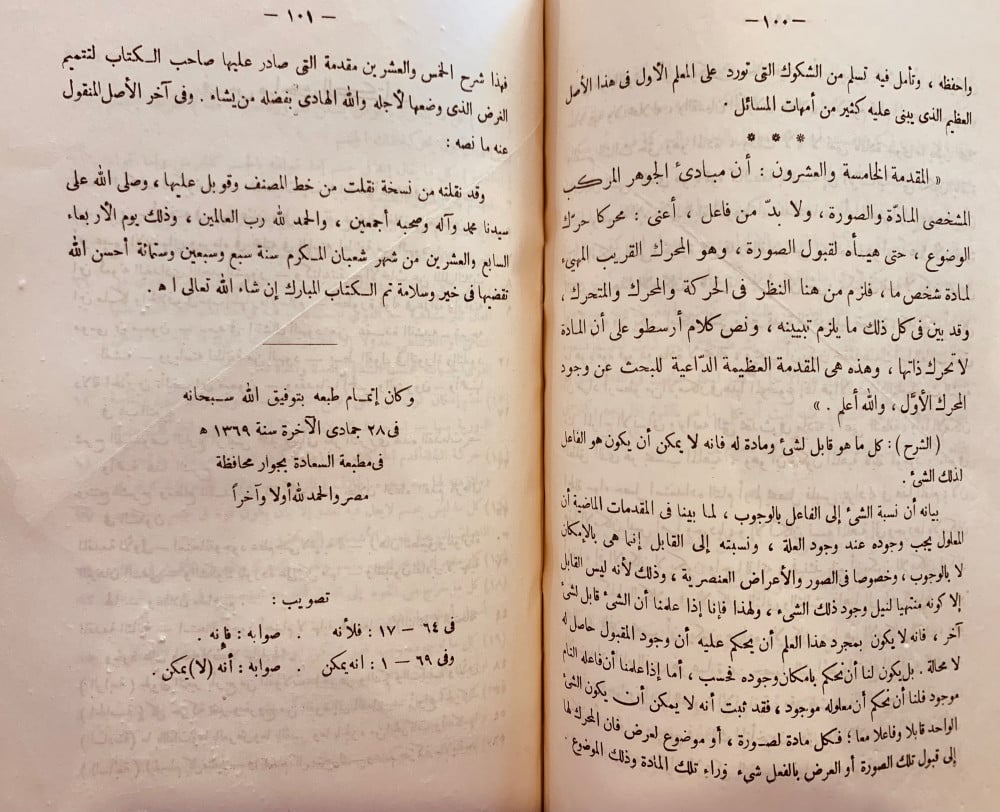 — ١٠٠ —
واحفظه ، وتأمل فيه تسلم من الشكوك التى تورد على المعلم الأول فى هذا الأصل
العظيم الذى يبنى عليه كثير من أمهات المسائل .
* * *
« المقدمة الخامسة والعشرون : أن مبادئ الجوهر المركب
الشخصى المادّة والصورة ، ولا بدّ من فاعل ، أعنى : محركا حرّك
الوضوع ، حتى هيــأه لقبول الصورة ، وهو المحرك القريب المهيئ
لمادة شخص ما ، فلزم من هنا النظر فى الحركة والمحرك والمتحرك ،
وقد بين فى كل ذلك ما يلزم تبيينه ، ونص كلام أرسطو على أن المادة
لا تحرك ذاتها ، وهذه هى المقدمة العظيمة الدّاعية للبحث عن وجود
المحرك الأوّل ، والله أعلم . »
( الشرح ) : كل ما هو قابل لشئ ومادة له فانه لا يمكن أن يكون هو الفاعل
لذلك الشئ .
بيانه أن نسبة الشئ إلى الفاعل بالوجوب ، لما بينا فى المقدمات الماضية أن
المعلول يجب وجوده عند وجود العلة ، ونسبته إلى القابل إنما هى بالإمكان
لا بالوجوب ، وخصوصا فى الصور والأعراض العنصرية ، وذلك لأنه ليس القابل
إلا كونه متهيا لنيل وجود ذلك الشىء ، ولهذا فإنا إذا علمنا أن الشئ قابل لشئ
آخر ، فانه لا يكون بمجرد هذا العلم أن يحكم عليه أن وجود المقبول حاصل له
لا محالة . بل يكون لنا أن نحكم بامكان وجوده فحسب ، أما إذا علمنا أن فاعله التام
موجود فلنا أن نحكم أن معلوله موجود ، فقد ثبت أنه لا يمكن أن يكون الشئ
الواحد قابلا وفاعلا معا ؛ فكل مادة لصورة ، أو موضوع لعرض فان المحرك لها
إلى قبول تلك الصورة أو العرض بالفعل شىء وراء تلك المادة وذلك الموضوع .
— ١٠١ —
فهذا شرح الخمس والعشرين مقدمة التى صادر عليها صاحب الكتاب لتتميم
الغرض الذى وضعها لأجله والله الهادى بفضله من يشاء . وفى آخر الأصل المنقول
عنه ما نصه :
وقد نقلته من نسخة نقلت من خط المصنف وقوبل عليها ، وصلى الله على
سيدنا محمد وآله وصحبه أجمعين ، والحمد لله رب العالمين ، وذلك يوم الأربعاء
السابع والعشرين من شهر شعبان المكرم سنة سبع وسبعين وستمائة أحسن الله
تقضيها فى خير وسلامة تم الكتاب المبارك إن شاء الله تعالى ا ﻫ .
وكان إتمــام طبعه بتوفيق الله سبحانه
فى ٢٨ جمادى الآخرة سنة ١٣٦٩ ﻫ
فى مطبعة السعادة بجوار محافظة
مصر والحمد لله أولا وآخراً
تصويب :
فى ٦٤ — ١٧ : فلأنه . صوابه : فإنه .
وفى ٦٩ — ١ : انه يمكن . صوابه : أنه (لا) يمكن .